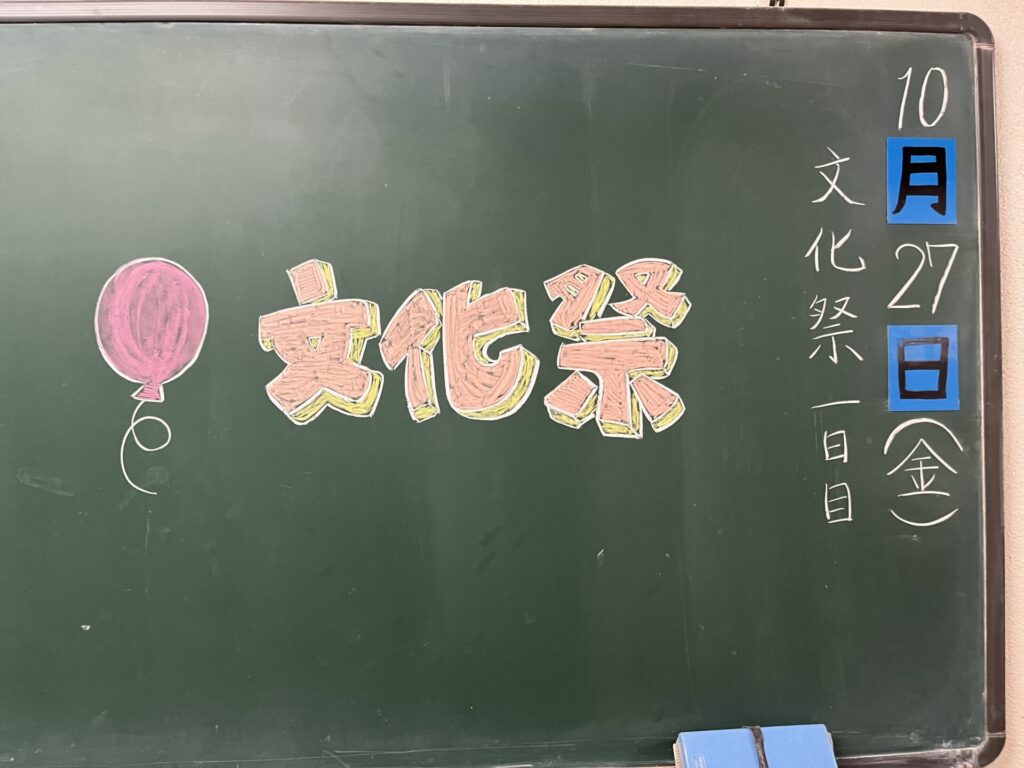 10月27日(金)
文化祭一日目
文化祭